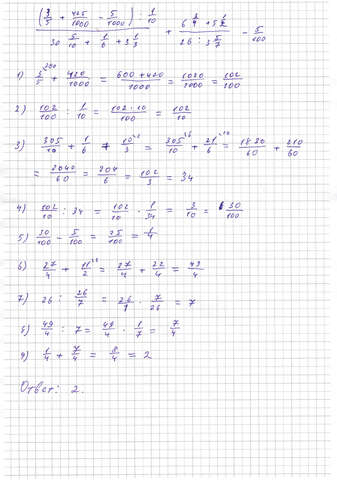 ((3/5 + 425/1000 - 5/1000) : 1/10) / (30 5/10 + 1/6 + 3 1/3) + (6 3/4 + 5 1/2) / (26 : 3 5/7) - 5/100
1) 3/5^200 + 420/1000 = (600+420)/1000 = 1020/1000 = 102/100
2) 102/100 : 1/10 = (102·10)/100 = 102/10
3) 305/10 + 1/6 + 10/3 = 305/10 + 21/6 = 1830/60 + 210/60
= 2040/60 = 204/6 = 102/3 = 34
4) 102/10 : 34 = 102/10 · 1/34 = 3/10 = 30/100
5) 30/100 - 5/100 = 25/100 = 1/4
6) 27/4 + 11/2 = 27/4 + 22/4 = 49/4
7) 26 : 26/7 = 26/1 · 7/26 = 7
8) 49/4 : 7 = 49/4 · 1/7 = 7/4
9) 1/4 + 7/4 = 8/4 = 2
Ответ: 2.